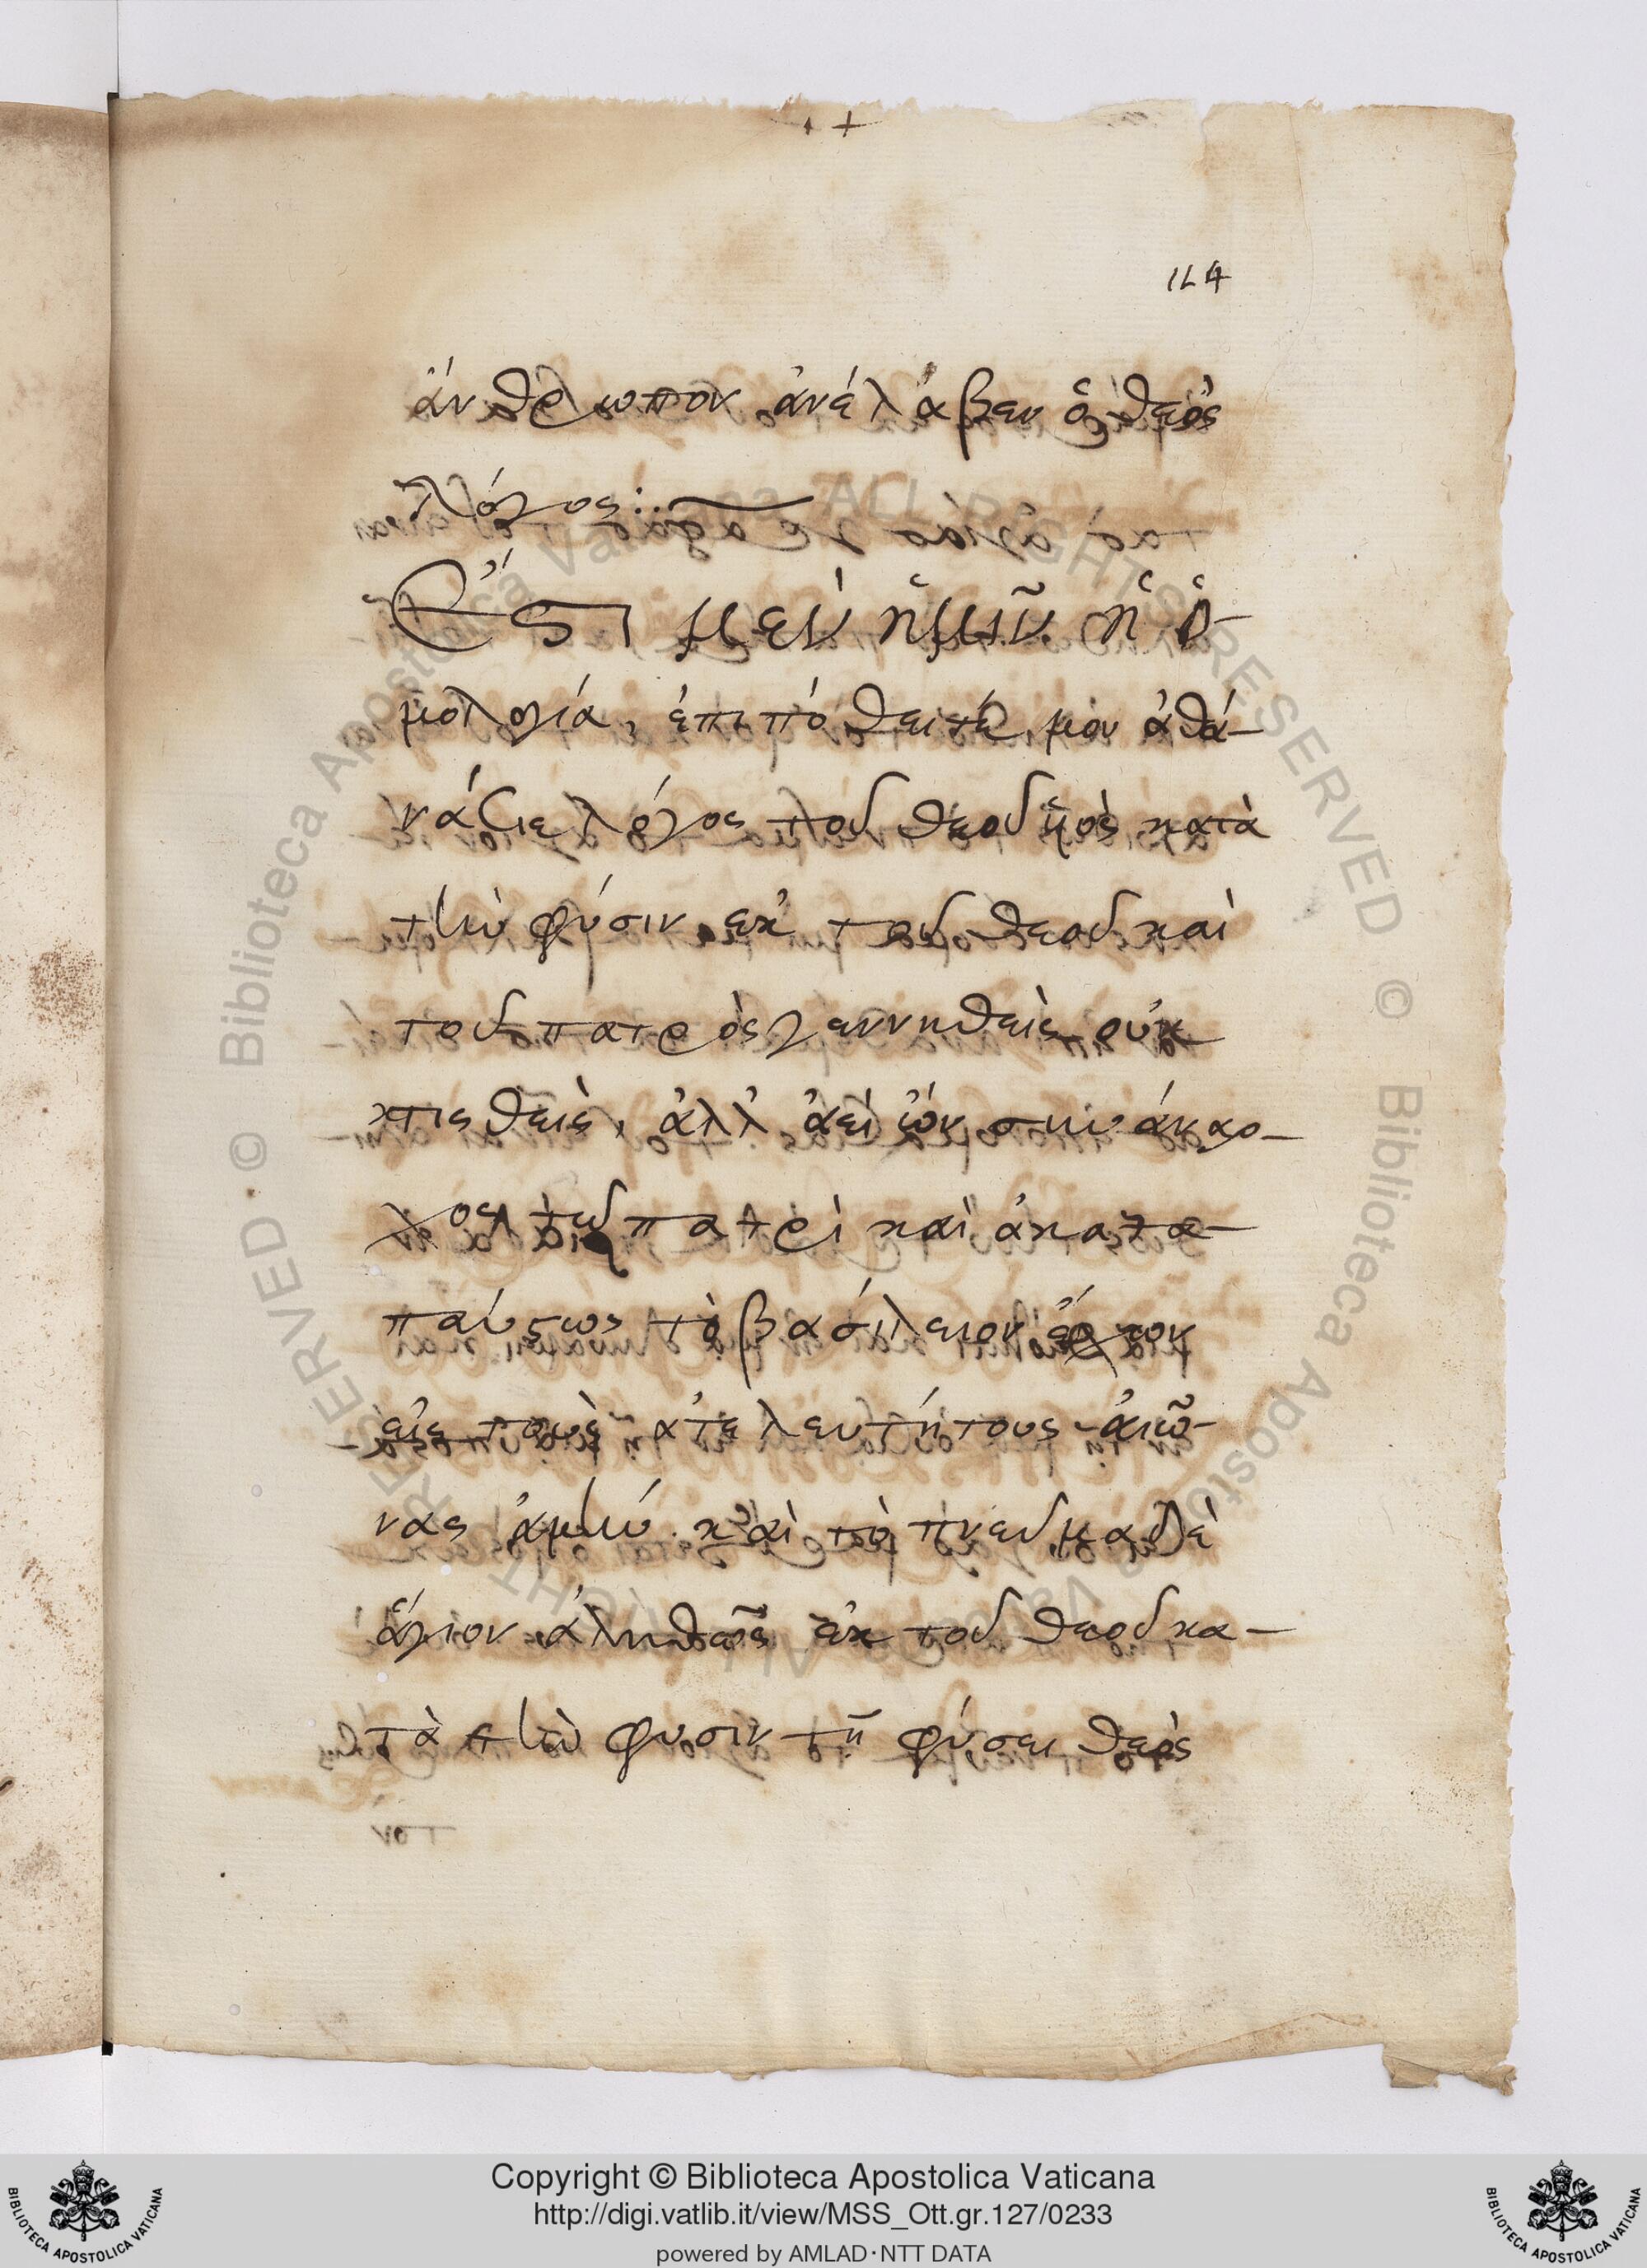 114
ἄνθρωπον ἀνέλαβεν ὁ θεὸς
λόγος:
Ἔστι μὲν ἡμῖν ἡ ὁ-
μολογία, ἐπιπόθειτέ μου ἀθα-
νάσιε λόγος τοῦ θεοῦ
τὴν φύσιν ἐκ τοῦ θεοῦ καὶ
τοῦ πατρὸς γεννηθεὶς οὐ
κτισθεὶς, ἀλλ' ἀεὶ ὢν συνάναρ-
χος τῷ πατρὶ καὶ ἀκατα-
παύστως τὸ βασίλειον ἔχων
εἰς τοὺς ἀτελευτήτους αἰῶ-
νας ἀμήν. καὶ τὸ πνεῦμα δὲ
ἅγιον ἀληθῶς ἐκ τοῦ θεοῦ κα-
τὰ τὴν φυσιν τῆ φύσει θεὸς
Copyright © Biblioteca Apostolica Vaticana
http://digi.vatlib.it/view/MSS_Ott.gr.127/0233
powered by AMLAD·NTT DATA
BIBLIOTECA APOSTOLICA VATICANA
BIBLIOTECA APOSTOLICA VATICANA